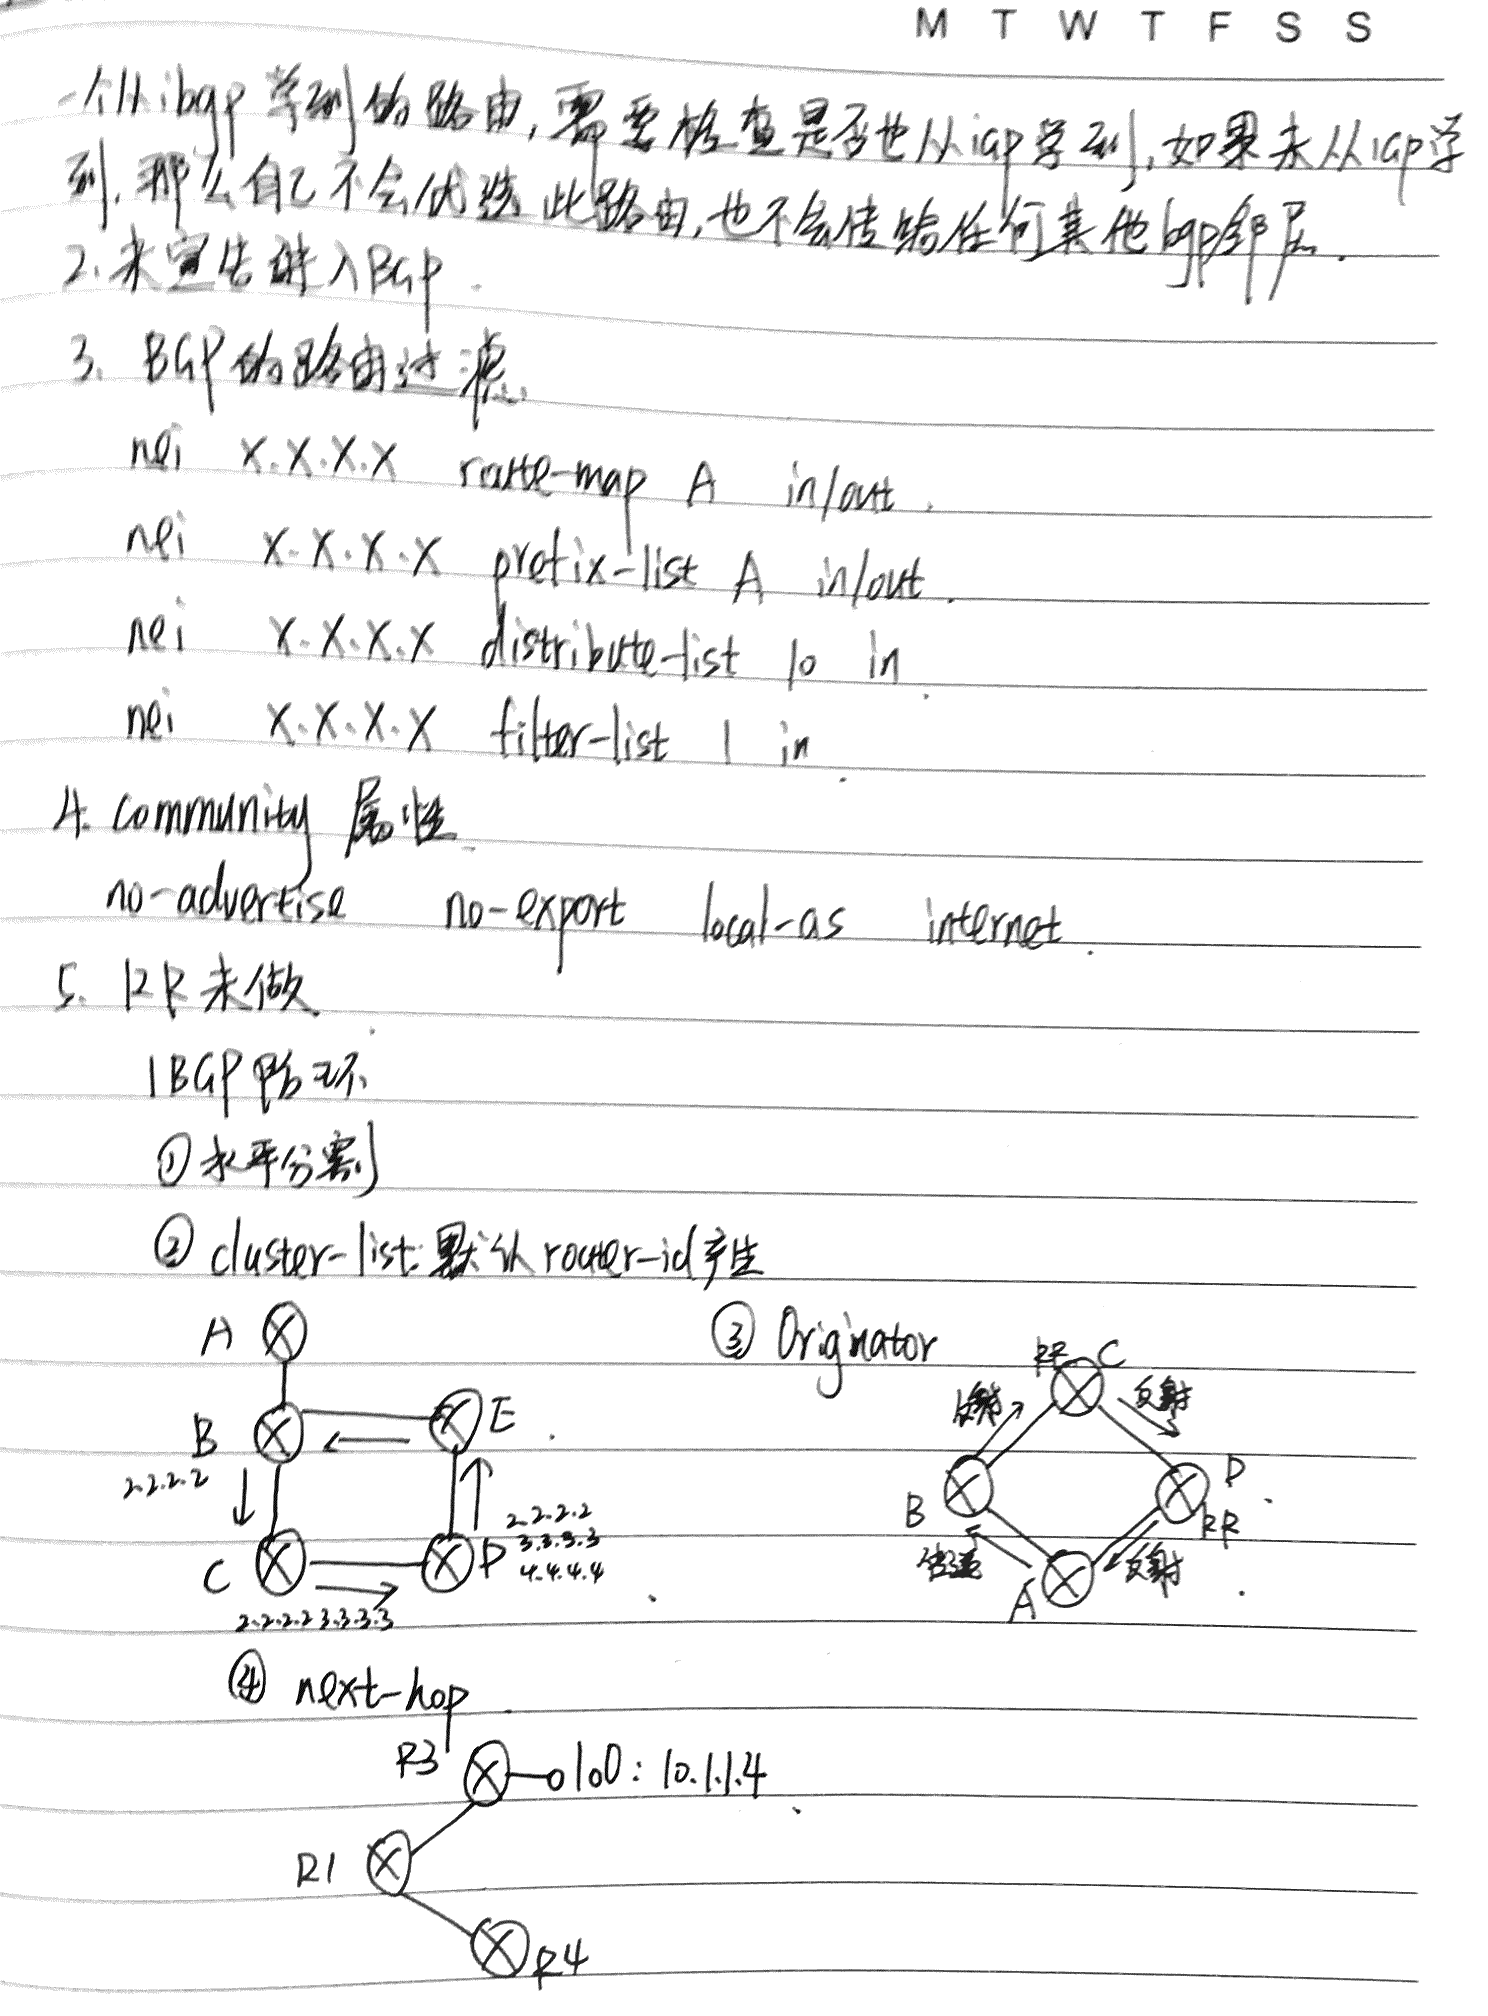 M T W T F S S
一个从ibgp学到的路由,需要检查是否也从igp学到,如果未从igp学
到,那么自己不会优选此路由,也不会传输任何其他bgp邻居.
2.未宣告进入BGP.
3. BGP的路由过滤.
nei x.x.x.x route-map A in/out.
nei x.x.x.x prefix-list A in/out.
nei x.x.x.x distribute-list 10 in.
nei x.x.x.x filter-list 1 in.
4. community 属性.
no-advertise no-export local-as internet.
5. RR未做.
IBGP防环
①水平分割
②cluster-list:默认router-id产生
③Originator
A
B
E
2.2.2.2
C
D
2.2.2.2
3.3.3.3
4.4.4.4
2.2.2.2 3.3.3.3
RR C
反射
反射
B
D
RR
传递
反射
A
④ next-hop
R3
lo0: 10.1.1.4
R1
R4